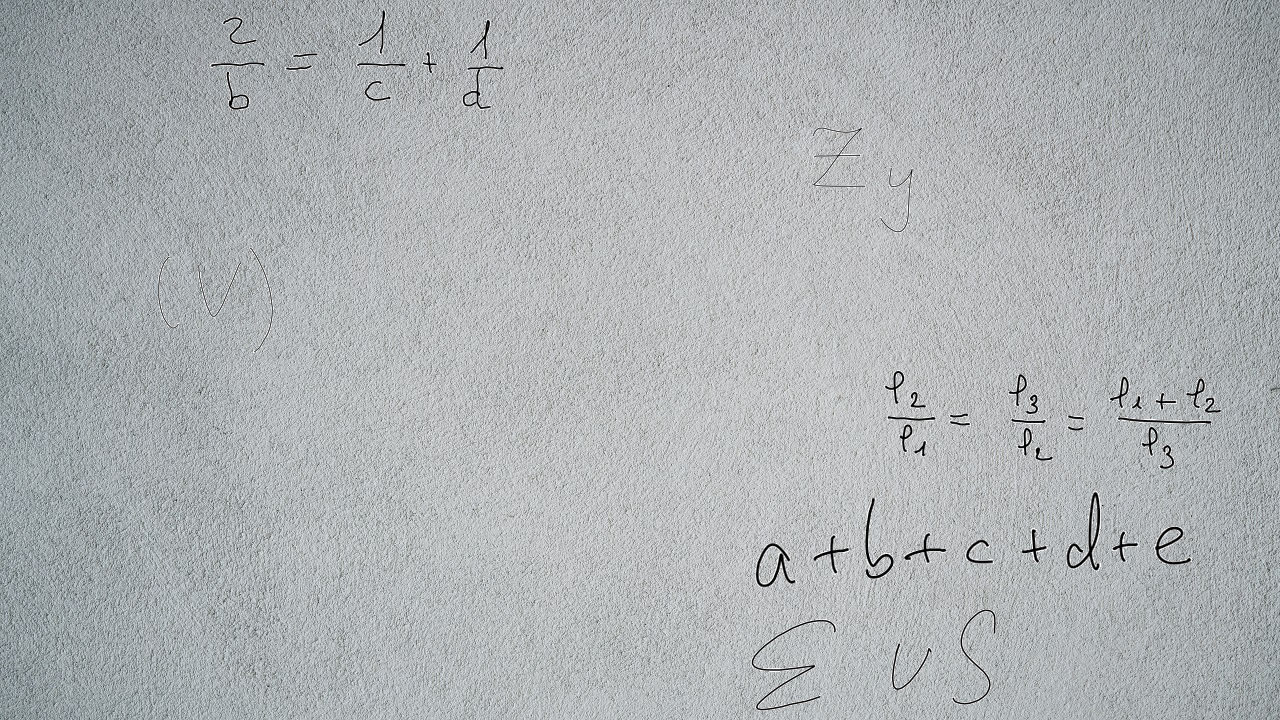 2/b = 1/c + 1/d
Z y
(v)
l₂/l₁ = l₃/l₂ = (l₁ + l₂)/l₃
a + b + c + d + e
Σ ∪ S